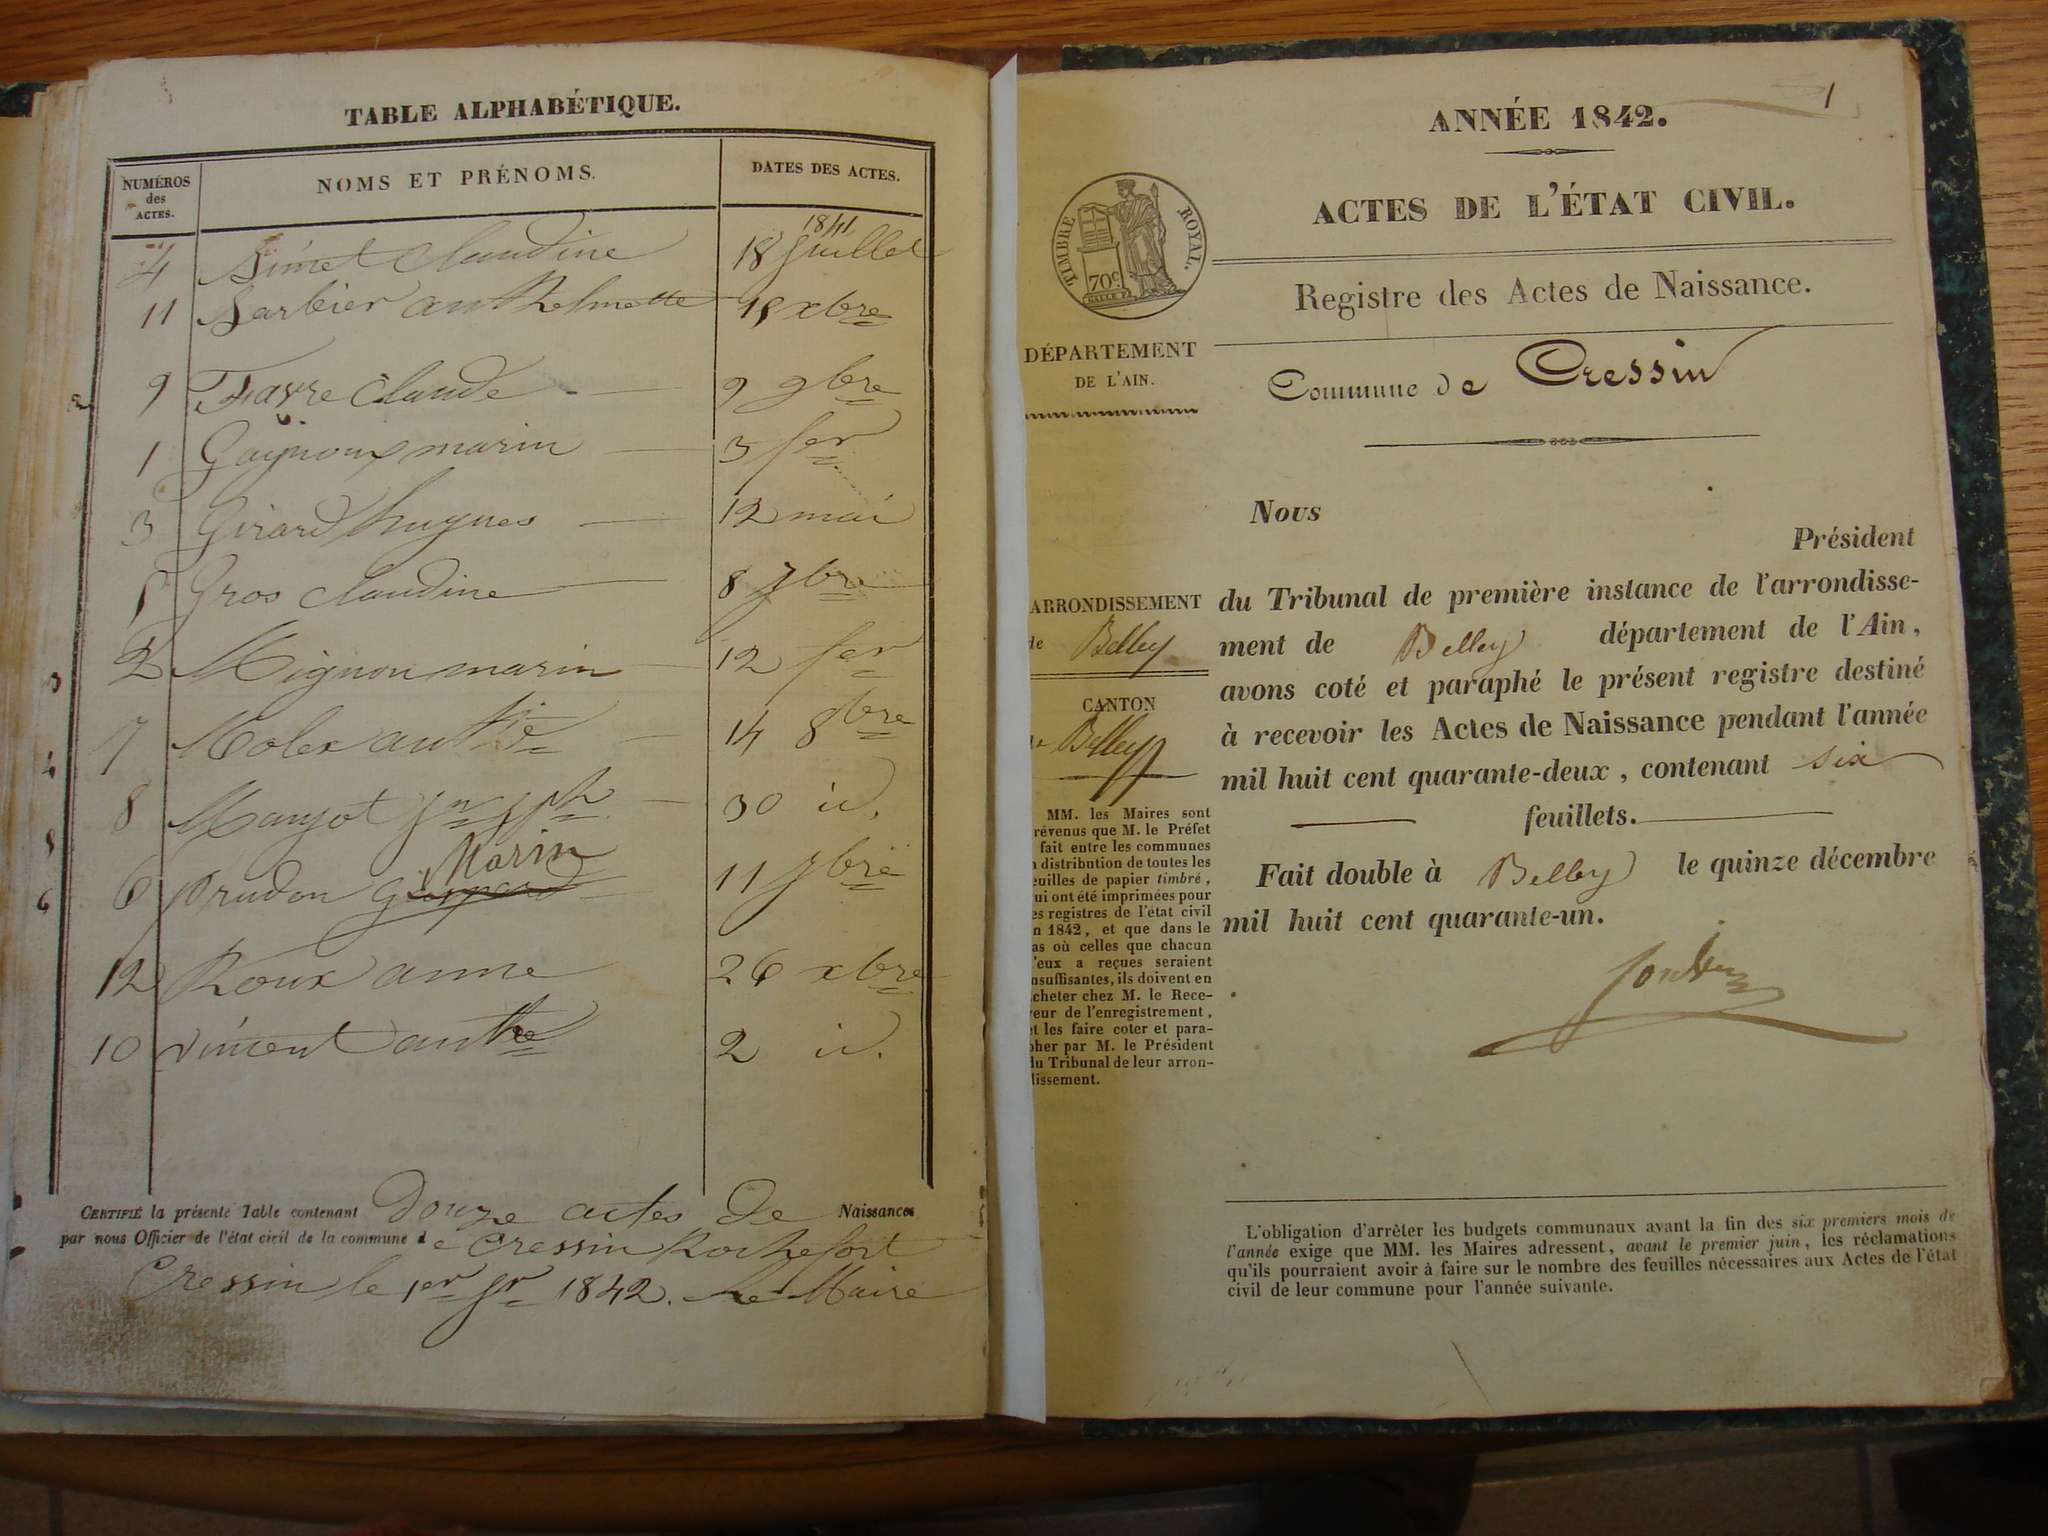 TABLE ALPHABÉTIQUE.
NUMÉROS des ACTES.
NOMS ET PRÉNOMS.
DATES DES ACTES.
1841
4 Simet Claudine 18 Juillet
11 Barbier anthelmette 15 xbre
9 Favre Claude 9 9bre
1 Gagnoux marin 3 fer
3 Girard hugues 12 mai
5 Gros Claudine 8 7bre
2 Mignon marin 12 fer
7 Molex 14 8bre
8 30 id.
Marin
6 prudon 11 7bre
12 Roux anne 26 xbre
10 vincent anthe 2 id.
CERTIFIÉ la présente Table contenant Douze actes De Naissances
par nous Officier de l'état civil de la commune de Cressin Rochefort
Cressin le 1er Jr 1842. Le Maire
1
ANNÉE 1842.
ACTES DE L'ÉTAT CIVIL.
TIMBRE ROYAL.
70c
Registre des Actes de Naissance.
DÉPARTEMENT
DE L'AIN.
Commune de Cressin
Nous
Président
ARRONDISSEMENT
de Belley
CANTON
Belley
du Tribunal de première instance de l'arrondisse-
ment de Belley département de l'Ain,
avons coté et paraphé le présent registre destiné
à recevoir les Actes de Naissance pendant l'année
mil huit cent quarante-deux, contenant six
feuillets.
Fait double à Belley le quinze décembre
mil huit cent quarante-un.
MM. les Maires sont
révenus que M. le Préfet
fait entre les communes
distribution de toutes les
euilles de papier timbré,
ui ont été imprimées pour
es registres de l'état civil
n 1842, et que dans le
as où celles que chacun
'eux a reçues seraient
nsuffisantes, ils doivent en
cheter chez M. le Rece-
veur de l'enregistrement,
et les faire coter et para-
pher par M. le Président
du Tribunal de leur arron-
dissement.
L'obligation d'arrêter les budgets communaux avant la fin des six premiers mois de
l'année exige que MM. les Maires adressent, avant le premier juin, les réclamations
qu'ils pourraient avoir à faire sur le nombre des feuilles nécessaires aux Actes de l'état
civil de leur commune pour l'année suivante.